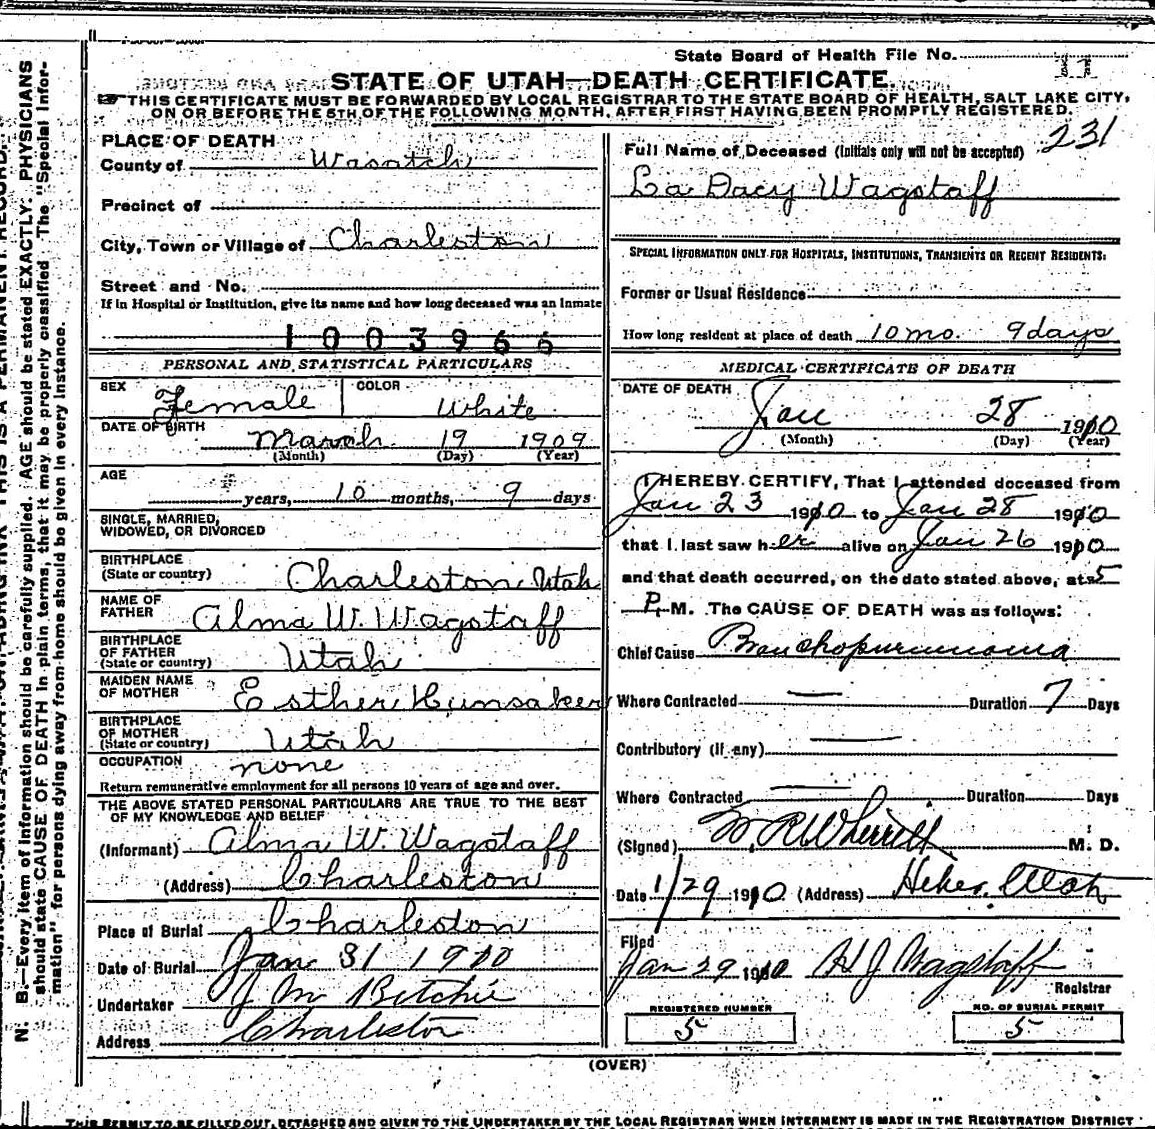 State Board of Health File No. 11
STATE OF UTAH—DEATH CERTIFICATE
THIS CERTIFICATE MUST BE FORWARDED BY LOCAL REGISTRAR TO THE STATE BOARD OF HEALTH, SALT LAKE CITY,
ON OR BEFORE THE 5TH OF THE FOLLOWING MONTH, AFTER FIRST HAVING BEEN PROMPTLY REGISTERED.
231
PLACE OF DEATH
County of Wasatch
Precinct of
City, Town or Village of Charleston
Street and No.
If in Hospital or Institution, give its name and how long deceased was an inmate
1003966
PERSONAL AND STATISTICAL PARTICULARS
SEX Female COLOR White
DATE OF BIRTH March 19 1909
(Month) (Day) (Year)
AGE
years, 10 months, 9 days
SINGLE, MARRIED,
WIDOWED, OR DIVORCED
BIRTHPLACE
(State or country) Charleston Utah
NAME OF
FATHER Alma W. Wagstaff
BIRTHPLACE
OF FATHER
(State or country) Utah
MAIDEN NAME
OF MOTHER Esther Hunsaker
BIRTHPLACE
OF MOTHER
(State or country) Utah
OCCUPATION none
Return remunerative employment for all persons 10 years of age and over.
THE ABOVE STATED PERSONAL PARTICULARS ARE TRUE TO THE BEST
OF MY KNOWLEDGE AND BELIEF
(Informant) Alma W. Wagstaff
(Address) Charleston
Place of Burial Charleston
Date of Burial Jan 31 1910
Undertaker J M Ritchie
Address Charleston
Full Name of Deceased (Initials only will not be accepted)
La Dacy Wagstaff
SPECIAL INFORMATION ONLY FOR HOSPITALS, INSTITUTIONS, TRANSIENTS OR RECENT RESIDENTS:
Former or Usual Residence
How long resident at place of death 10 mo. 9 days
MEDICAL CERTIFICATE OF DEATH
DATE OF DEATH
Jan 28 1910
(Month) (Day) (Year)
I HEREBY CERTIFY, That I attended deceased from
Jan 23 1910 to Jan 28 1910
that I last saw her alive on Jan 26 1910
and that death occurred, on the date stated above, at 5
P. M. The CAUSE OF DEATH was as follows:
Chief Cause Bronchopneumonia
Where Contracted — Duration 7 Days
Contributory (if any) —
Where Contracted — Duration Days
(Signed) W. R. Wherritt M. D.
Date 1/29 1910 (Address) Heber, Utah
Filed
Jan 29 1910 H J Wagstaff
Registrar
REGISTERED NUMBER NO. OF BURIAL PERMIT
5 5
(OVER)
THIS PERMIT TO BE FILLED OUT, DETACHED AND GIVEN TO THE UNDERTAKER BY THE LOCAL REGISTRAR WHEN INTERMENT IS MADE IN THE REGISTRATION DISTRICT
N. B.—Every item of information should be carefully supplied. AGE should be stated EXACTLY. PHYSICIANS
should state CAUSE OF DEATH in plain terms, that it may be properly classified. The "Special Infor-
mation" for persons dying away from home should be given in every instance.